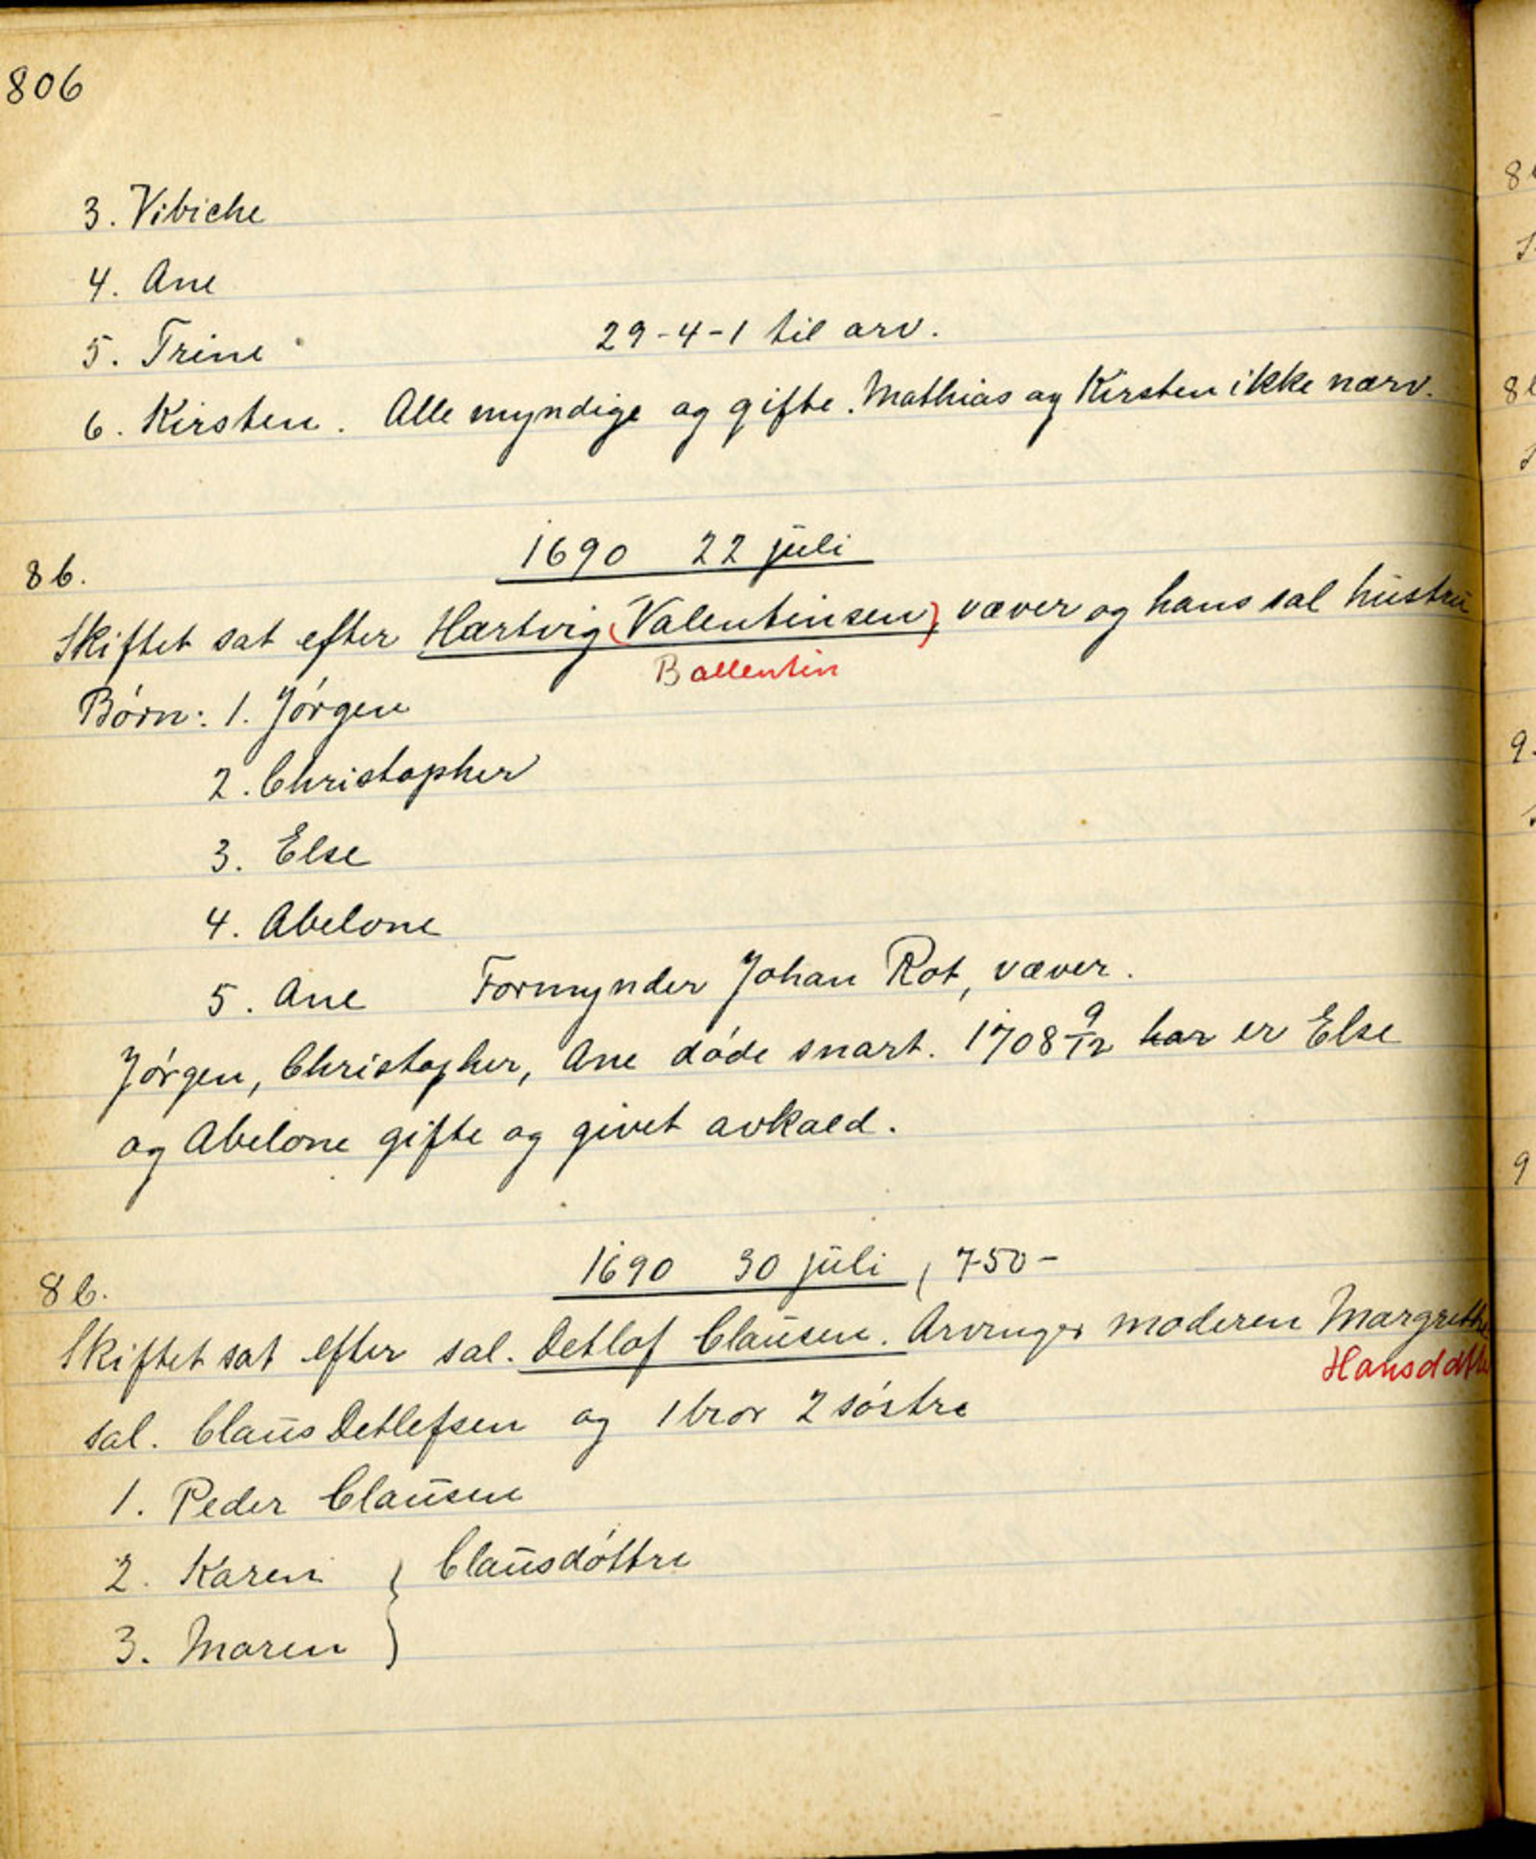 806
3. Vibiche
4. Ane
5. Trine 29-4-1 til arv.
6. Kirsten. Alle myndige og gifte. Mathias og Kirsten ikke nærv.
1690 22 juli
8b.
Skiftet sat efter Hartvig (Valentinsen), væver og hans sal hustru
Ballentin
Børn: 1. Jórgen
2. Christopher
3. Else
4. Abelone
5. Ane Formynder Johan Rot, væver.
Jórgen, Christopher, Ane dóde snart. 1708 9/12 har er Else
og Abelone gifte og givet avkald.
1690 30 juli, 750-
8b.
Skiftet sat efter sal. Detlof Clausen. Arvinger moderen Margrethe
Hansddtr
sal. Claus Detlefsen og 1 bror 2 sóstre
1. Peder Clausen
2. Karen } Clausdóttre
3. Maren